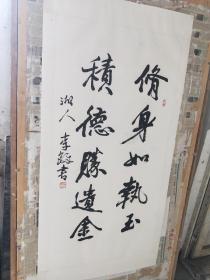 脩身如執玉
積德勝遺金
湖人李鐸書